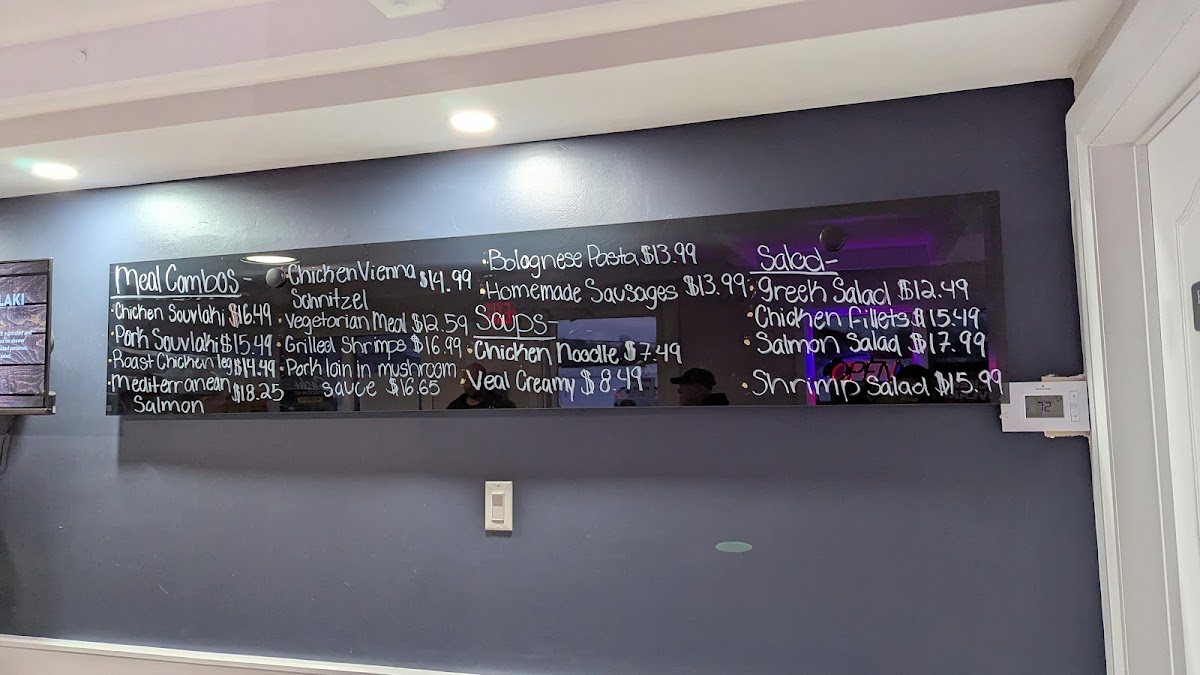 Meal Combos-
• Chicken Souvlaki $16.49
• Pork Souvlaki $15.49
• Roast Chicken leg $14.49
• Mediterranean Salmon $18.25
• Chicken Vienna Schnitzel $14.99
• Vegetarian Meal $12.59
• Grilled Shrimps $16.99
• Pork loin in mushroom
sauce $16.65
• Bolognese Pasta $13.99
• Homemade Sausages $13.99
Soups-
• Chicken Noodle $7.49
• Veal Creamy $8.49
Salad-
• Greek Salad $12.49
• Chicken Fillets $15.49
• Salmon Salad $17.99
• Shrimp Salad $15.99
LAKI
OPEN
72